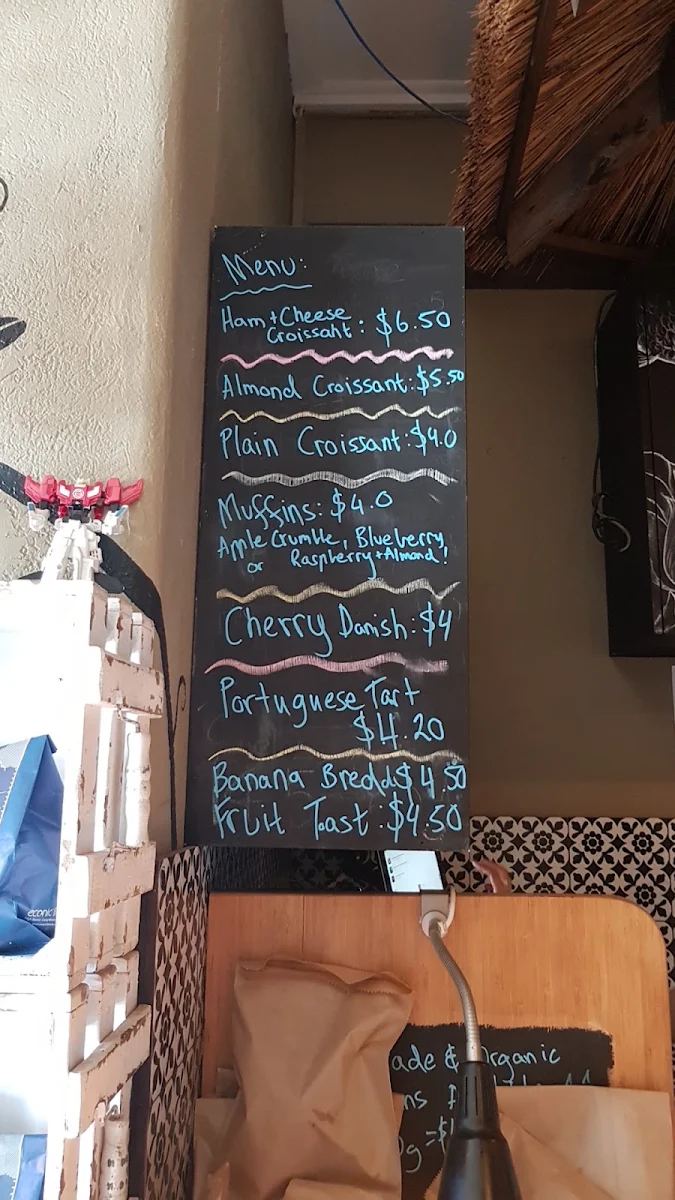 Menu:
Ham + Cheese
Croissant : $6.50
Almond Croissant: $5.50
Plain Croissant: $4.0
Muffins: $4.0
Apple Crumble, Blueberry,
or Raspberry + Almond!
Cherry Danish: $4
Portuguese Tart
$4.20
Banana Bredd $4.50
Fruit Toast : $4.50
ade & rganic